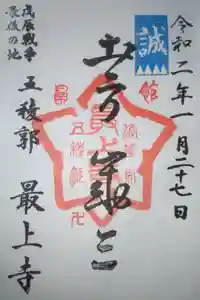 令和二年一月二十七日
誠
土方歳三
戊辰戦争
最後の地
五稜郭
最上寺